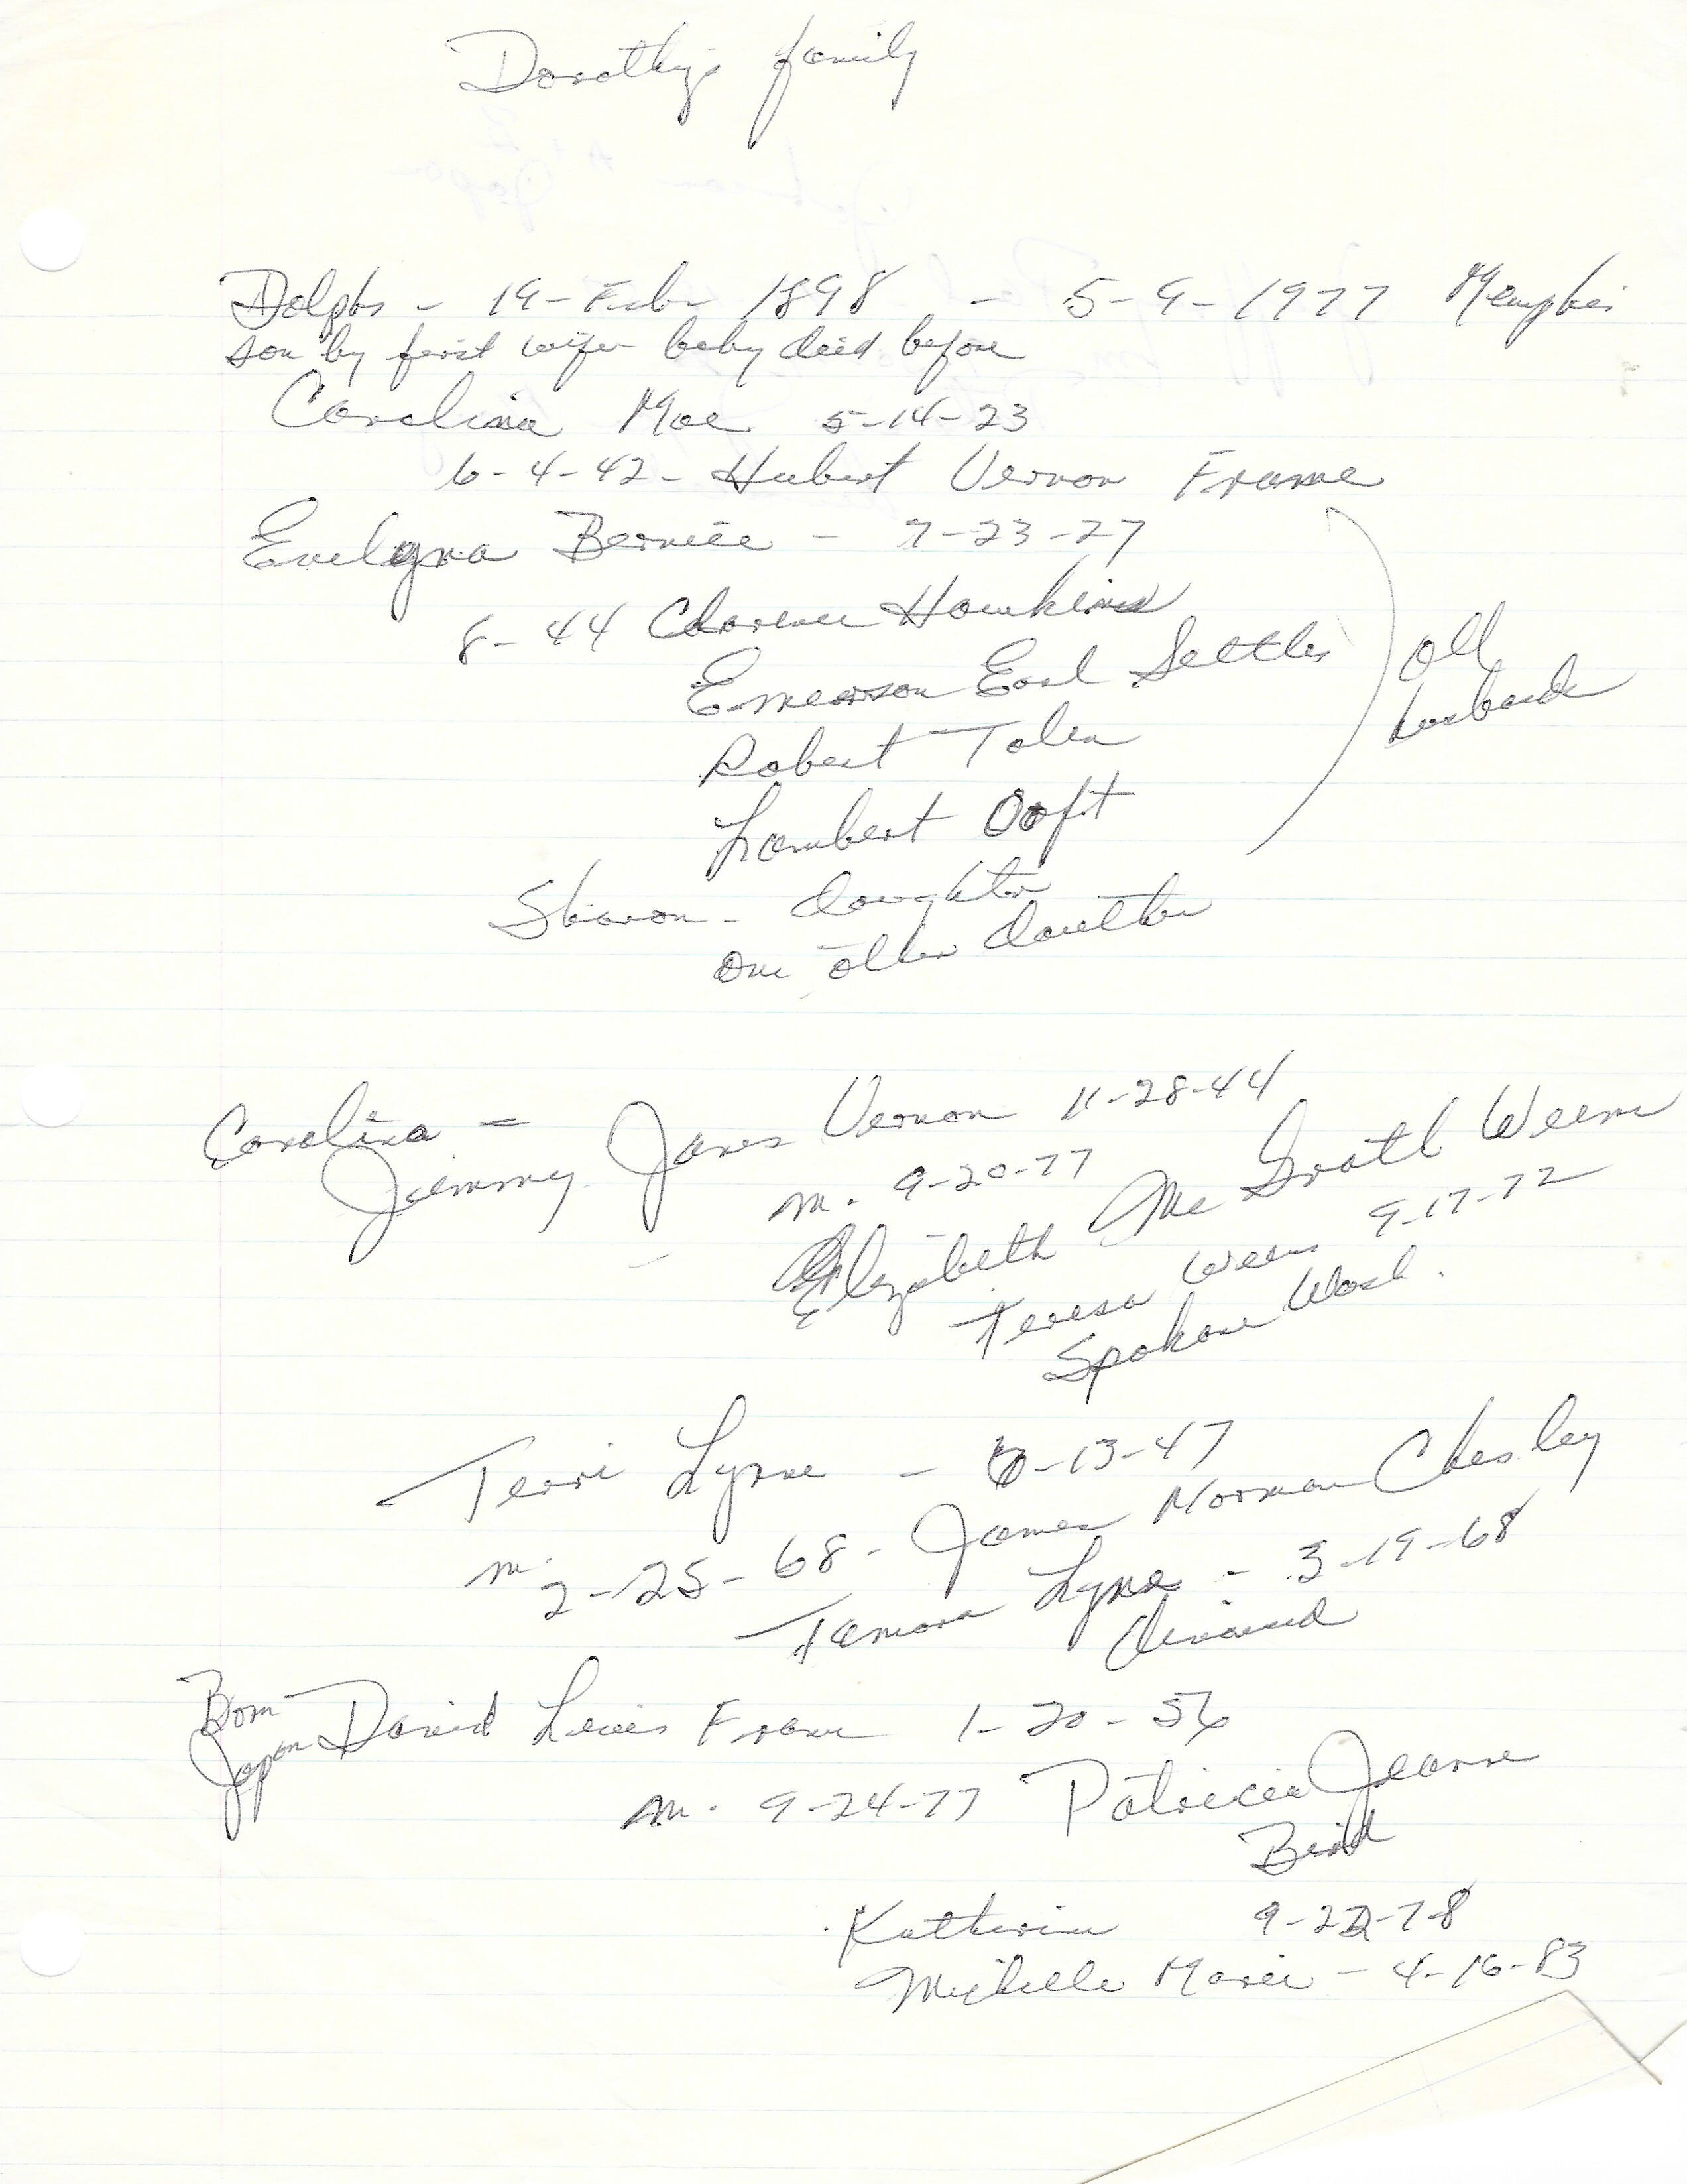 Dorothy's family
Dolphs - 19-Feb- 1898 - 5-9-1977 Memphis
son by first wife baby died before
Carolina Mae 5-14-23
6-4-42 - Hubert Vernon Frame
Evelyna Bernice - 7-23-27
8-44 Clarence Hawkins
Emerson Earl Settles
Robert Tolen
Lambert Ooft
all
husbands
Sharon - daughter
one other daughter
Carolina =
Jimmy James Vernon 11-28-44
m. 9-20-77
Elizabeth McGrath Weems
Teresa Weems 9-17-72
Spokane Wash.
Terri Lynne - 6-13-47
m. 2-25-68 - James Norman Chesley
Tamara Lynne - 3-19-68
divorced
Born
Japan David Lewis Frame 1-20-56
m. 9-24-77 Patricia Jeanne
Bird
Katherine 9-22-78
Michelle Marie - 4-16-83